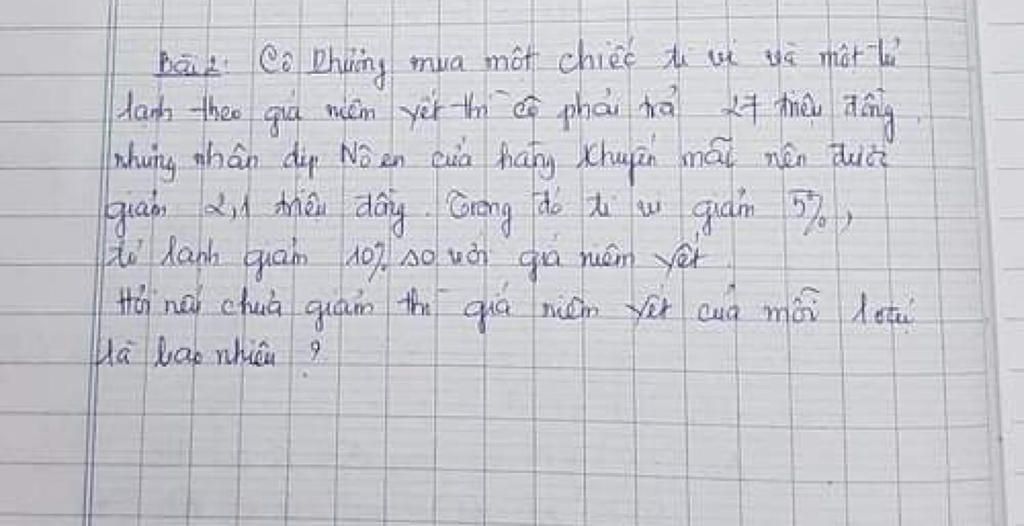 Bài 2: Cô Phương mua một chiếc ti vi và một tủ
lạnh theo giá niêm yết thì cô phải trả 27 triệu đồng.
nhưng nhân dịp Nô en cửa hàng khuyến mãi nên được
giảm 2,1 triệu đồng. Trong đó ti vi giảm 5%,
tủ lạnh giảm 10% so với giá niêm yết.
Hỏi nếu chưa giảm thì giá niêm yết của mỗi loại
là bao nhiêu?